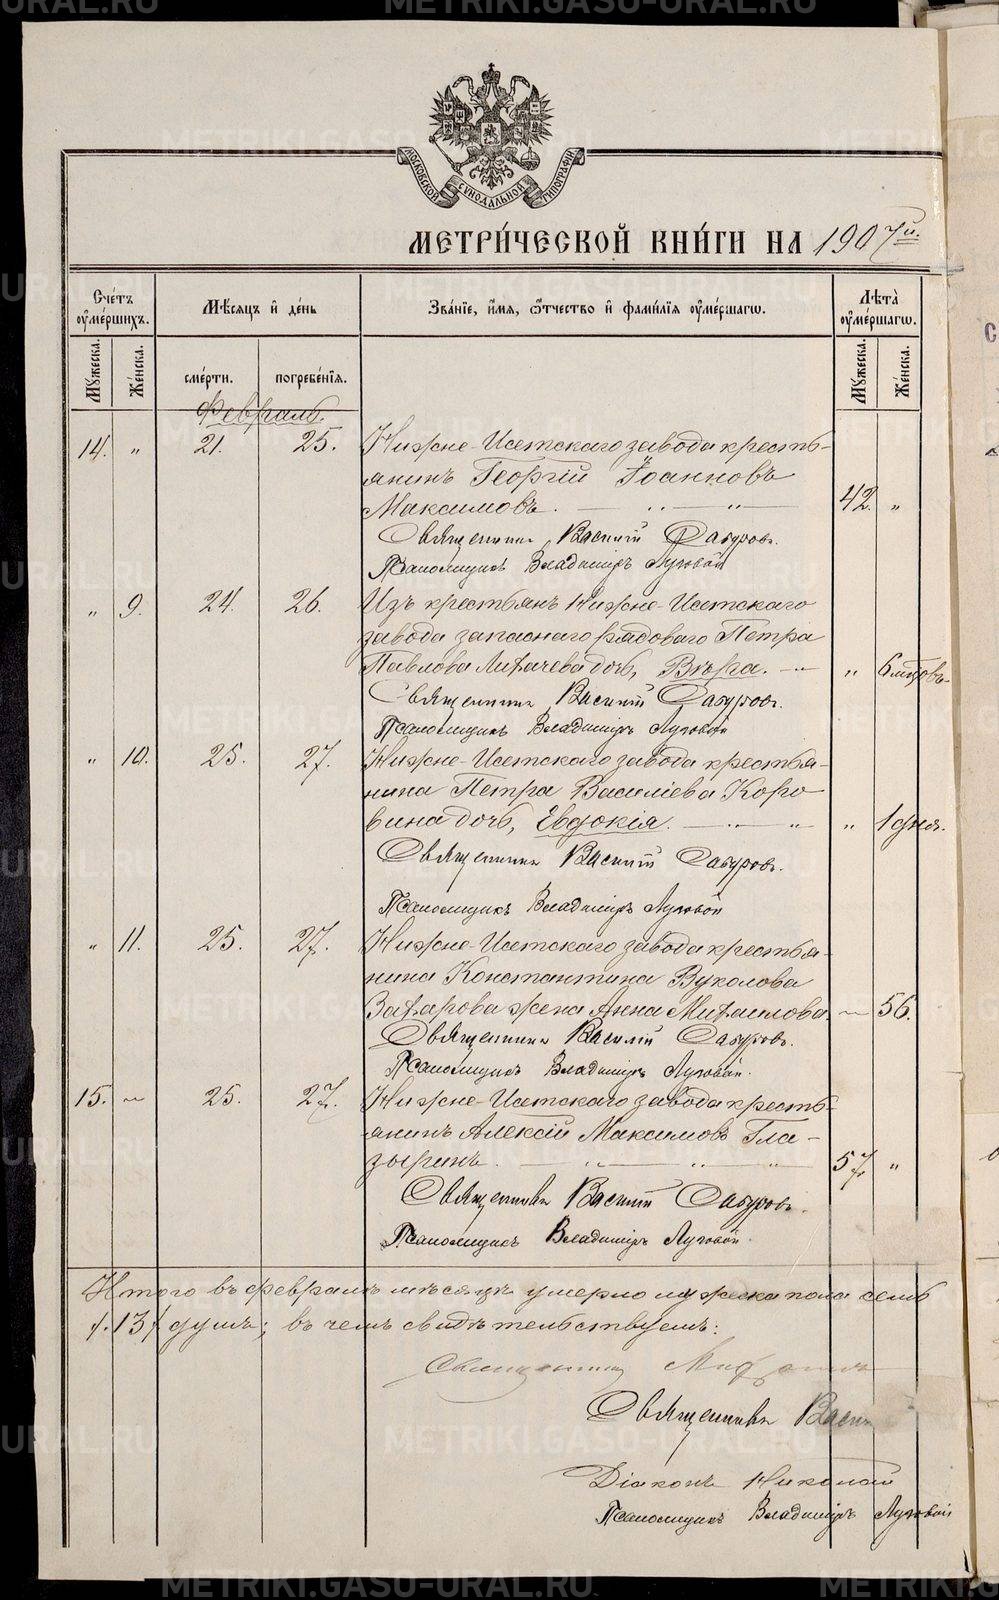 МОСКОВСКОЙ СѴНОДАЛЬНОЙ ТИПОГРАФІИ
МЕТРИ́ЧЕСКОЙ КНИ́ГИ НА 1907й.
Сче́тъ ᲂумершихъ.
Мѣсяцъ и де́нь
Зва́ніе, и́мя, ѻтчество и фами́лія ᲂуме́ршагѡ.
Лѣта̀ ᲂуме́ршагѡ.
Мужеска.
Же́нска.
сме́рти.
погребе́нія.
Мужеска.
Же́нска.
Февраль.
14. " 21. 25. Нижне-Исетскаго завода кресть-
янинъ Георгій Іоанновъ
Максимовъ. 42. "
Священникъ Василій Сабуровъ.
Псаломщикъ Владиміръ Луговой
" 9. 24. 26. Изъ крестьянъ Нижне-Исетскаго
завода запаснаго рядоваго Петра
Павлова Лихачева дочь, Вѣра. " 6 мцовъ.
Священникъ Василій Сабуровъ.
Псаломщикъ Владиміръ Луговой
" 10. 25. 27. Нижне-Исетскаго завода крестья-
нина Петра Василіева Коро
вина дочь, Евдокія. " 1 дня.
Священникъ Василій Сабуровъ.
Псаломщикъ Владиміръ Луговой
" 11. 25. 27. Нижне-Исетскаго завода крестья-
нина Константина Вуколова
Захарова жена Анна Михаилова. 56.
Священникъ Василій Сабуровъ.
Псаломщикъ Владиміръ Луговой.
15. 25. 27. Нижне-Исетскаго завода кресть-
янинъ Алексій Максимовъ Гла-
зыринъ. 57. "
Священникъ Василій Сабуровъ.
Псаломщикъ Владиміръ Луговой
Итого въ февралѣ мѣсяцѣ умерло мужеска пола семь
13 душъ; въ чемъ свидѣтельствуемъ:
Священникъ
Священникъ Васи
Діаконъ Николай
Псаломщикъ Владиміръ Луговой
METRIKI.GASO-URAL.RU